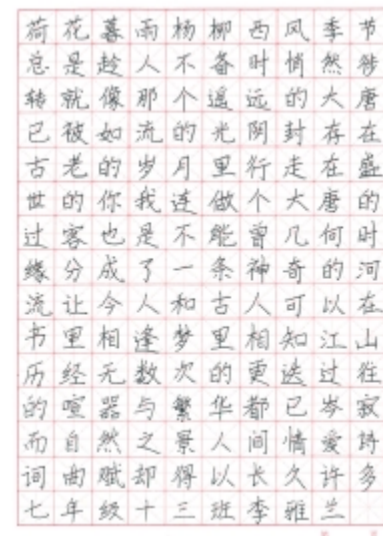 荷花暮雨杨柳西风季节
总是趁人不备时悄然嬗
转就像那个遥远的大唐
已被如流的光阴封存在
古老的岁月里行走在盛
世的你我连做个大唐的
过客也是不能曾几何时
缘分成了一条神奇的河
流让今人和古人可以在
书里相逢梦里相知江山
历经无数次的更迭过往
的喧嚣与繁华都已岑寂
而自然之景人间情爱诗
词曲赋却得以长久许多
七年级十三班李雅兰